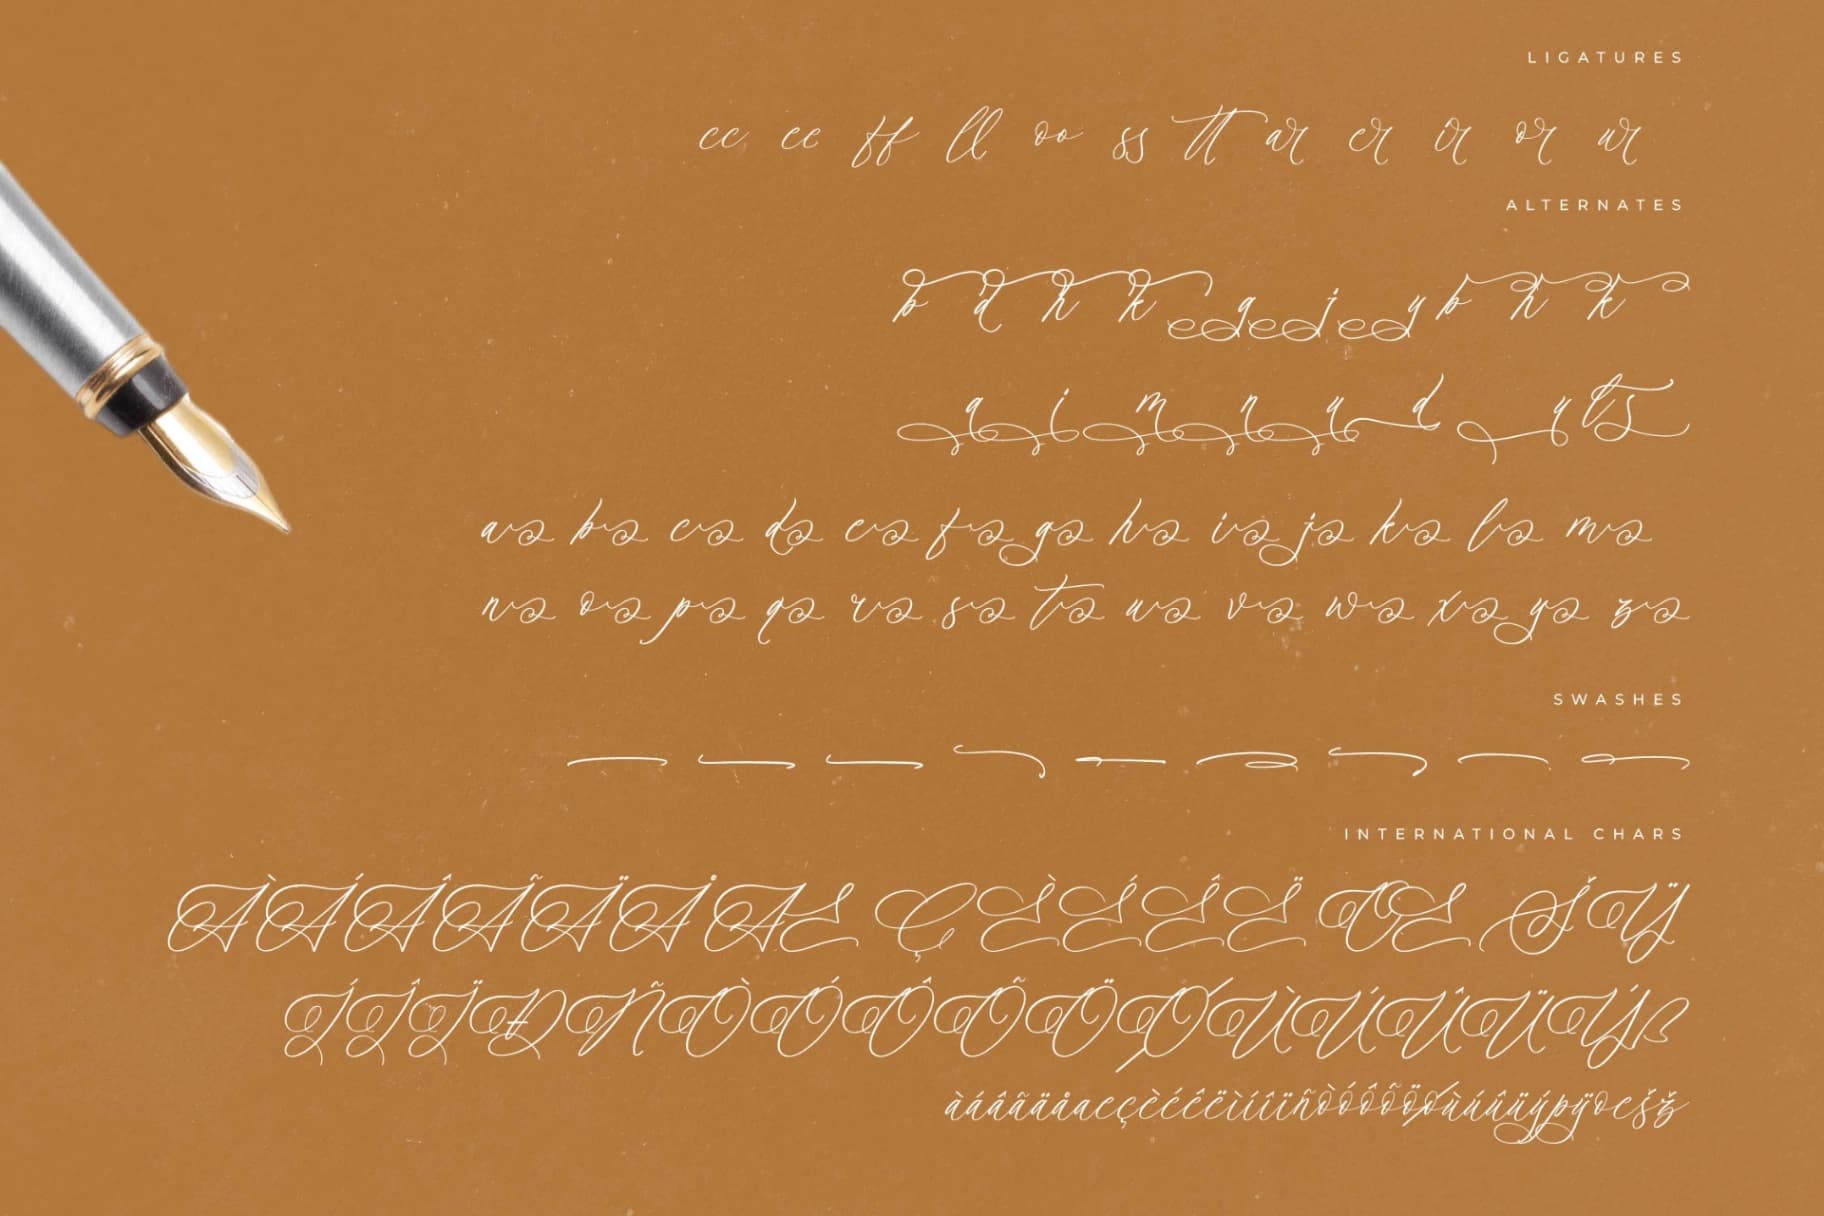 LIGATURES
cc ee ff ll oo ss tt ar er ir or ur
ALTERNATES
b d h k g j y b h k
a i m n u d y t s
a b c d e f g h i j k l m
n o p q r s t u v w x y z
SWASHES
INTERNATIONAL CHARS
ÀÁÂÃÄÅÆ ÇÈÉÊË Œ ŠŸ
ÍÎÏÐÑÒÓÔÕÖØÙÚÛÜÝß
àáâãäåæçèéêëìíîïñòóôõöøùúûüýþÿœšž